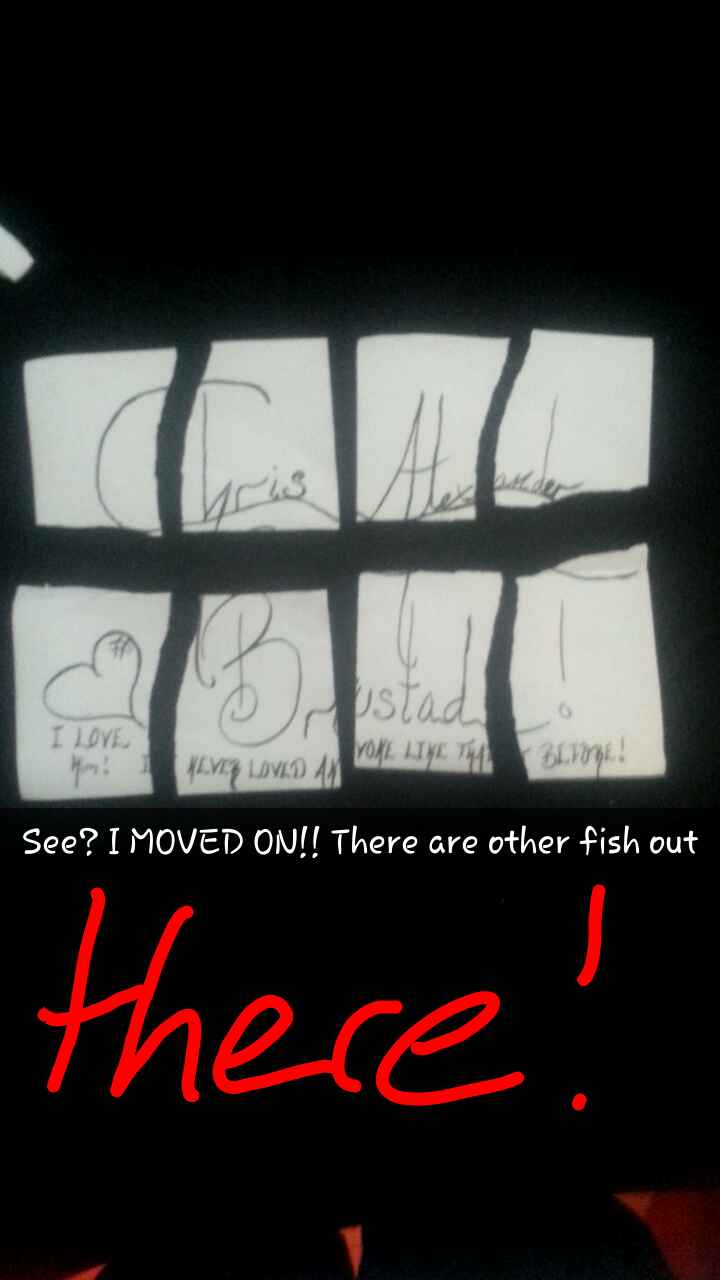 Chris Alexander
Brustad!
I LOVE
him! NEVER LOVED
LIKE BEFORE!
See? I MOVED ON!! There are other fish out
there!